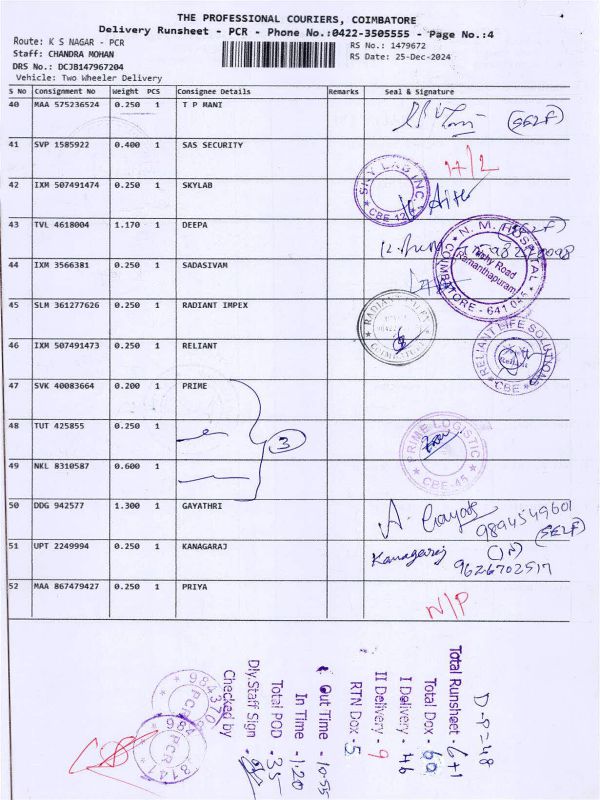 THE PROFESSIONAL COURIERS, COIMBATORE
Delivery Runsheet - PCR - Phone No.:0422-3505555 - Page No.:4
Route: K S NAGAR - PCR
Staff: CHANDRA MOHAN
DRS No.: DCJB147967204
Vehicle: Two Wheeler Delivery
RS No.: 1479672
RS Date: 25-Dec-2024
S No Consignment No Weight PCS Consignee Details Remarks Seal & Signature
40 MAA 575236524 0.250 1 T P MANI (SELF)
41 SVP 1585922 0.400 1 SAS SECURITY H/2
42 IXM 507491474 0.250 1 SKYLAB
SKY LAB INC. CBE-12
43 TVL 4618004 1.170 1 DEEPA
N. M. HOSPITAL
Ramanthapuram
COIMBATORE - 641 045
44 IXM 3566381 0.250 1 SADASIVAM
45 SLM 361277626 0.250 1 RADIANT IMPEX
RADIANT
COIMBATORE
46 IXM 507491473 0.250 1 RELIANT
RELIANT LIFE SOLUTIONS
CBE
47 SVK 40083664 0.200 1 PRIME
48 TUT 425855 0.250 1
3
PRIME LOGISTIC
CBE-45
49 NKL 8310587 0.600 1
50 DDG 942577 1.300 1 GAYATHRI A. Gayatri 9894549601
(SELF)
51 UPT 2249994 0.250 1 KANAGARAJ Kanagaraj (IN)
9626702517
52 MAA 867479427 0.250 1 PRIYA N/P
D-P=48
Total Runsheet - 6+1
Total Dox - 60
I Delivery - 46
II Delivery - 9
RTN Dox - 5
Out Time - 10.55
In Time - 1.20
Total POD - 35
Dly.Staff Sign -
Checked by
984370
PCR
984
PCR